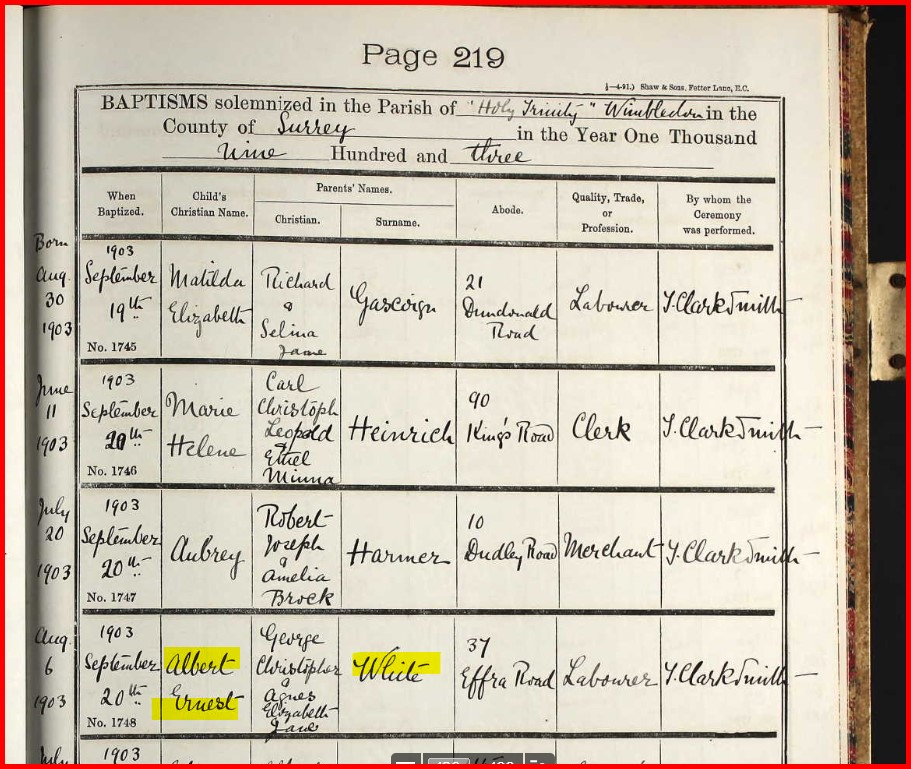 Page 219
(—4-91.) Shaw & Sons, Fetter Lane, E.C.
BAPTISMS solemnized in the Parish of "Holy Trinity" Wimbledon in the
County of Surrey in the Year One Thousand
Nine Hundred and three
When Baptized.
Child's Christian Name.
Parents' Names.
Christian.
Surname.
Abode.
Quality, Trade, or Profession.
By whom the Ceremony was performed.
Born
Aug. 30 1903
1903 September 19th No. 1745
Matilda Elizabeth
Richard & Selina Jane
Gascoign
21 Dundonald Road
Labourer
J. Clark Smith
June 11 1903
1903 September 20th No. 1746
Marie Helene
Carl Christoph Leopold & Ethel Minna
Heinrich
90 King's Road
Clerk
J. Clark Smith
July 20 1903
1903 September 20th No. 1747
Aubrey
Robert Joseph & Amelia Brock
Harmer
10 Dudley Road
Merchant
J. Clark Smith
Aug. 6 1903
1903 September 20th No. 1748
Albert Ernest
George Christopher & Agnes Elizabeth Jane
White
37 Effra Road
Labourer
J. Clark Smith
July
1903